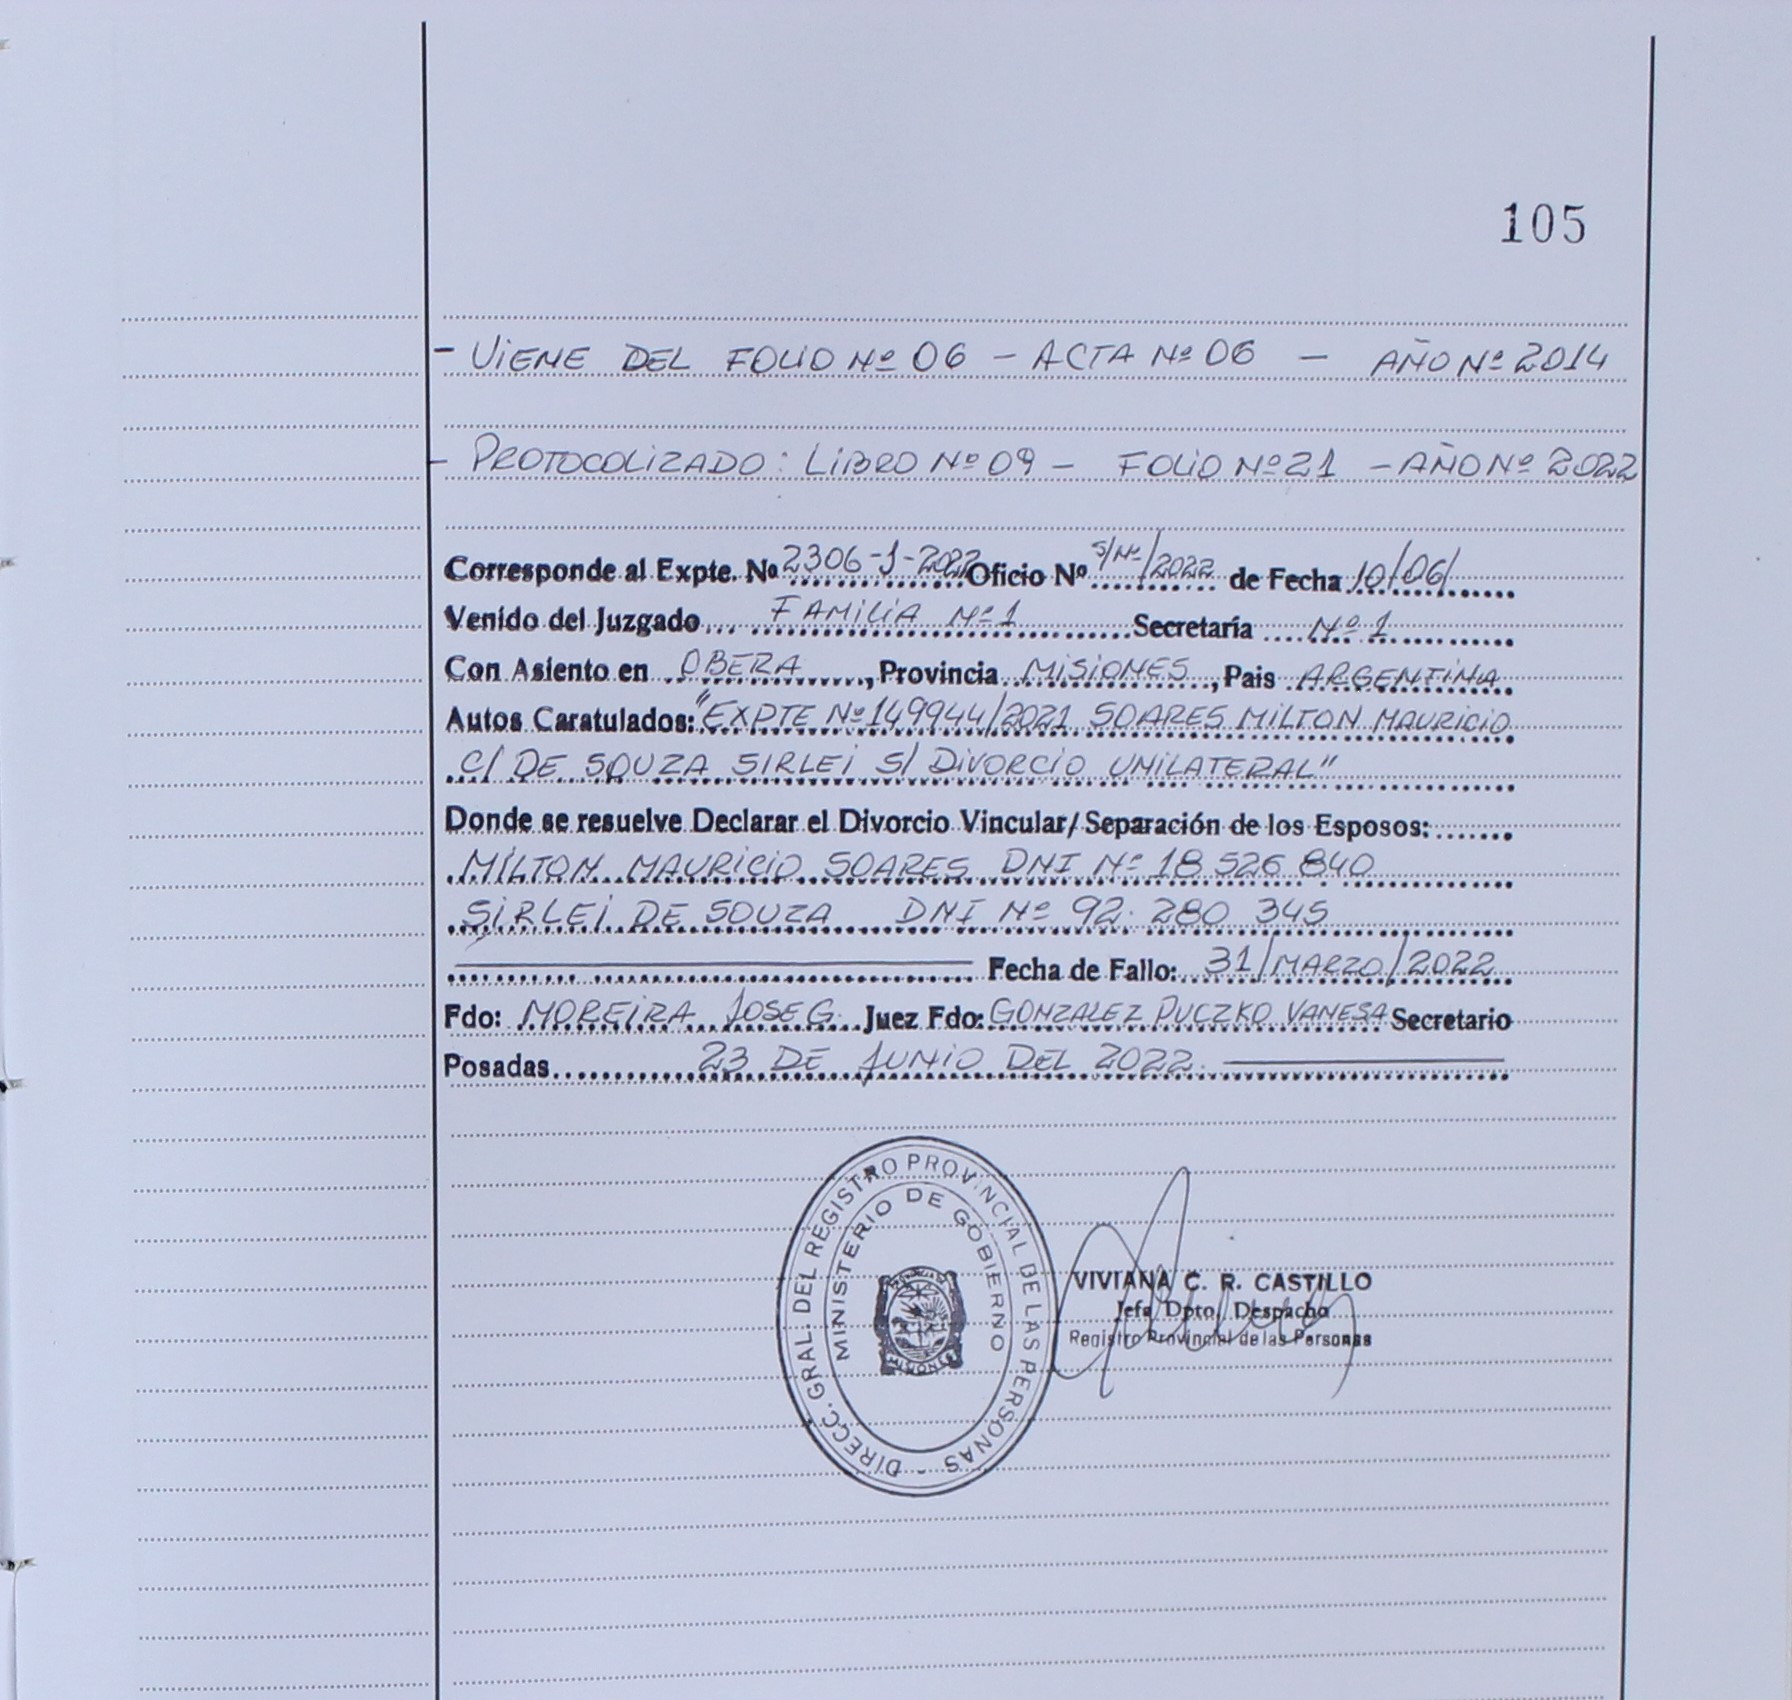 105
- ViENE DEL FOLIO Nº 06 - ACTA Nº 06 - AÑO Nº 2014
- PROTOCOLIZADO: LIBRO Nº 09 - FOLIO Nº 21 - AÑO Nº 2022
Corresponde al Expte. Nº 2306-J-2022 Oficio Nº S/Nº/2022 de Fecha 10/06/
Venido del Juzgado FAMILIA Nº 1 Secretaría Nº 1
Con Asiento en OBERA, Provincia MISIONES, Pais ARGENTINA
Autos Caratulados: "EXPTE Nº 149944/2021 SOARES MILTON MAURICIO
C/ DE SOUZA SIRLEI S/ DIVORCIO UNILATERAL"
Donde se resuelve Declarar el Divorcio Vincular/Separación de los Esposos:
MILTON MAURICIO SOARES DNI Nº 18 526 840
SIRLEI DE SOUZA DNI Nº 92. 280 345
Fecha de Fallo: 31/MARZO/2022
Fdo: MOREIRA JOSE G. Juez Fdo: GONZALEZ PUCZKO VANESA Secretario
Posadas 23 DE JUNIO DEL 2022.
DIRECC. GRAL. DEL REGISTRO PROVINCIAL DE LAS PERSONAS -
MINISTERIO DE GOBIERNO
MISIONES
VIVIANA C. R. CASTILLO
Jefa Dpto. Despacho
Registro Provincial de las Personas